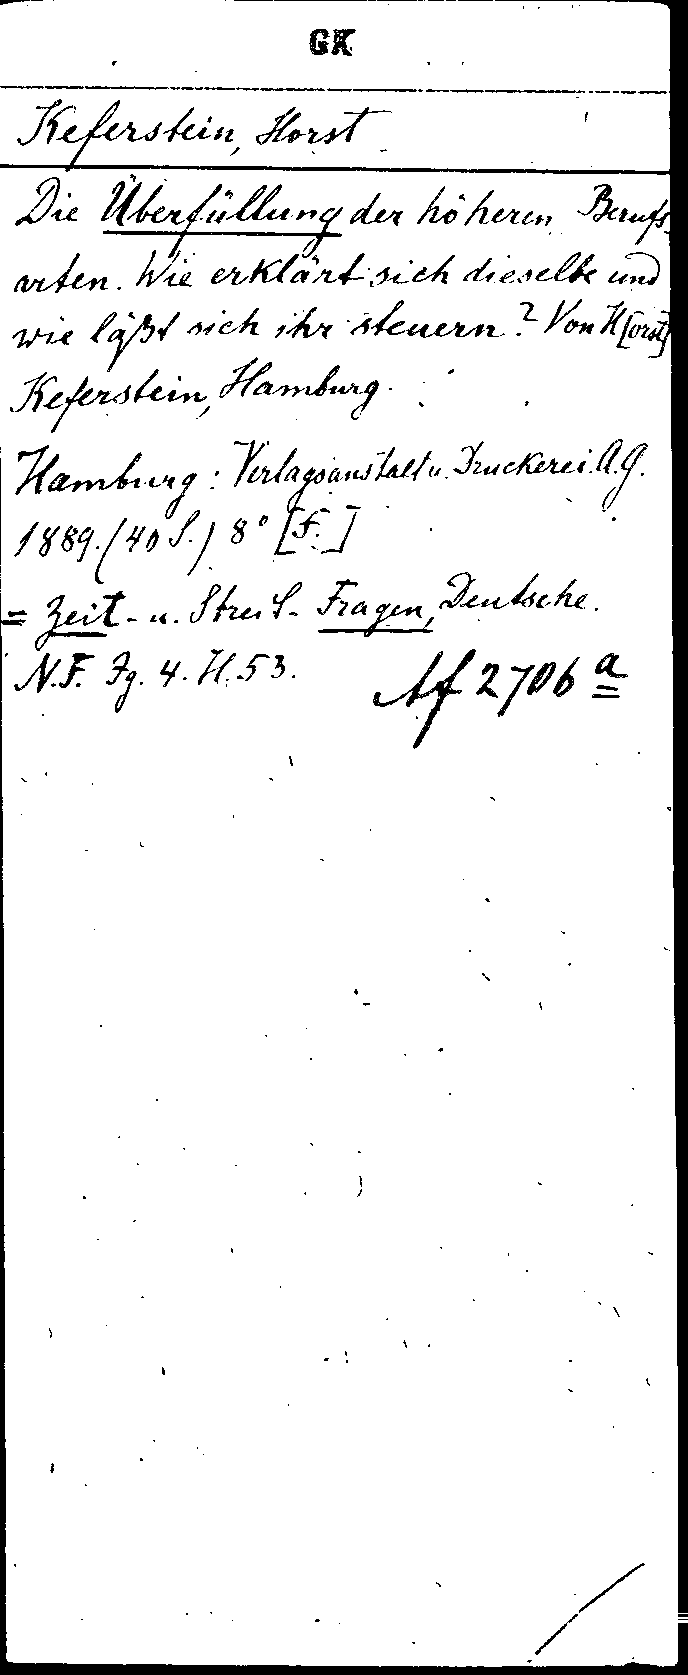 GK
Keferstein, Horst
Die Überfüllung der höheren Berufs
arten. Wie erklärt sich dieselbe und
wie läßt sich ihr steuern? Von H[orst]
Keferstein, Hamburg.
Hamburg: Verlagsanstalt u. Druckerei A.G.
1889. (40 S.) 8° [F.]
= Zeit- u. Streit-Fragen, Deutsche.
N.F. Jg. 4. H. 53.
Af 2706 a